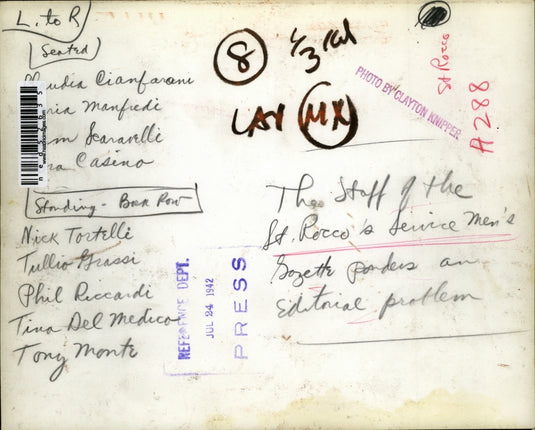 L. to R
(Seated)
Cianfarani
Manfredi
Scaravelli
Casino
Standing - Back Row
Nick Tortelli
Tullio Grassi
Phil Riccardi
Tina Del Medico
Tony Monte
8
1/3
LAY MX
PHOTO BY CLAYTON KNIPPER
St Rocco
A288
The Staff of the
St. Rocco's Service Men's
Gazette ponders an
Editorial problem
REFERENCE DEPT.
JUL 24 1942
PRESS